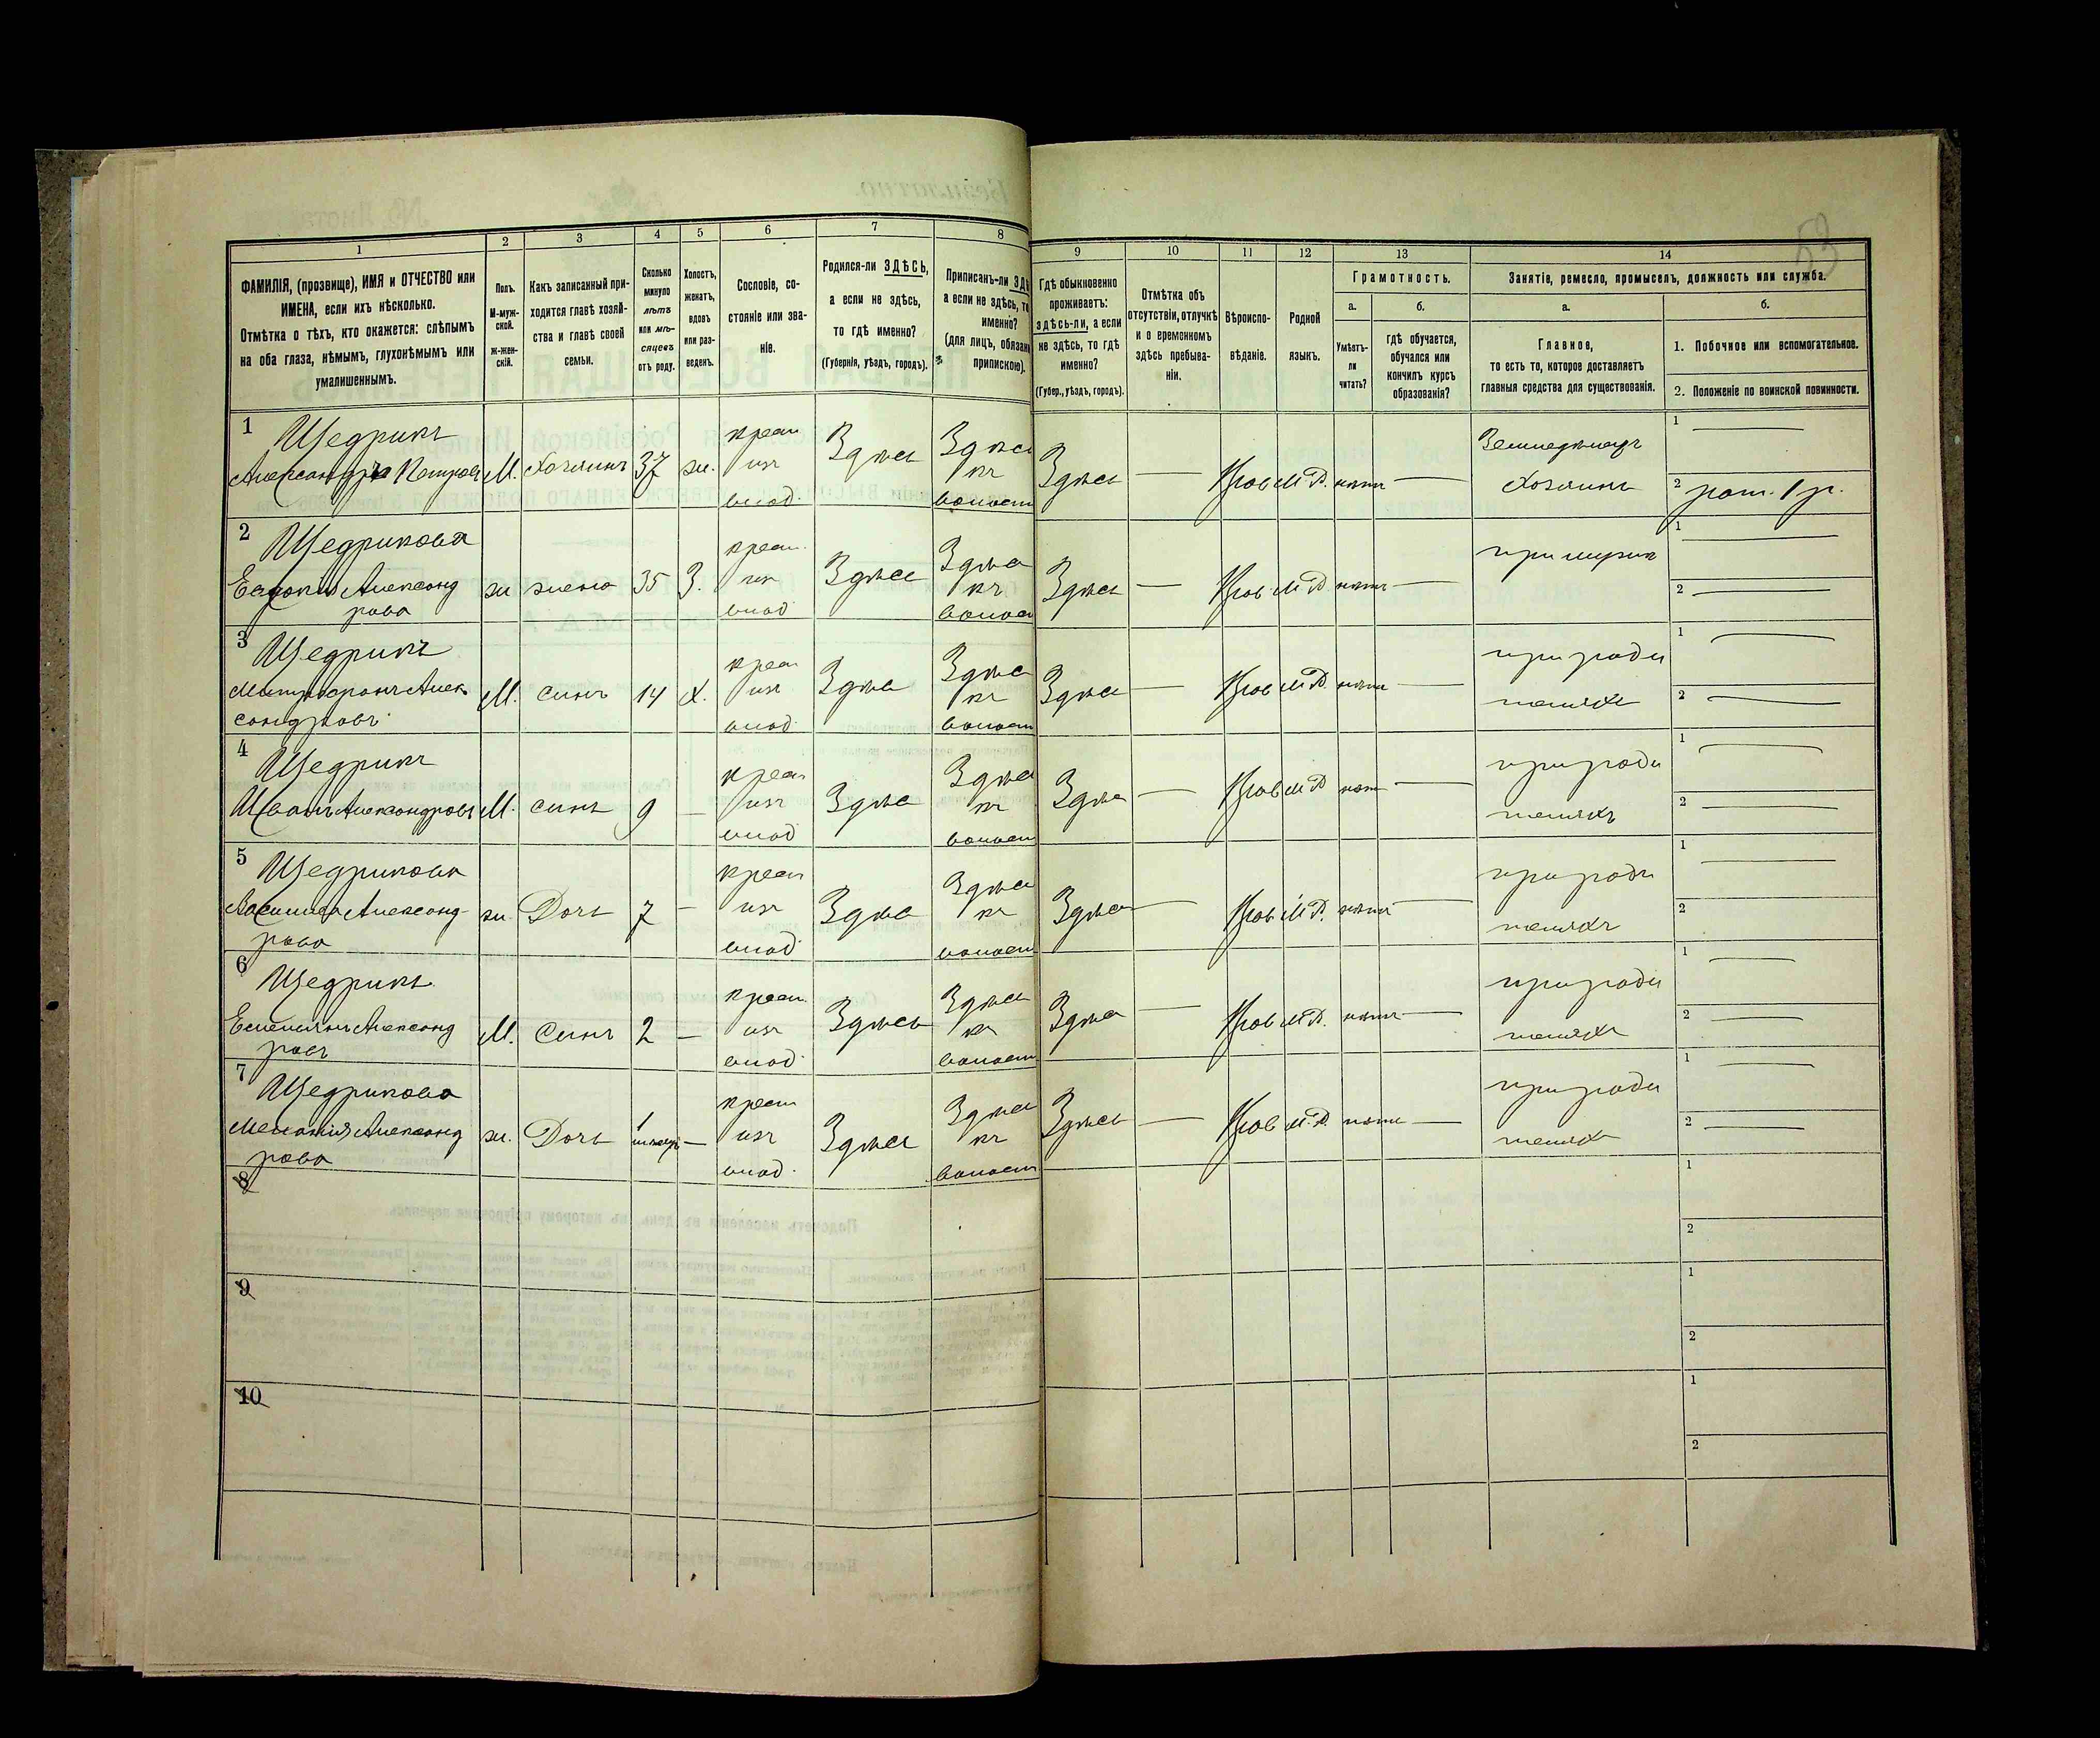 53
1
2
3
4
5
6
7
8
9
10
11
12
13
14
ФАМИЛІЯ, (прозвище), ИМЯ и ОТЧЕСТВО или
ИМЕНА, если ихъ нѣсколько.
Отмѣтка о тѣхъ, кто окажется: слѣпымъ
на оба глаза, нѣмымъ, глухонѣмымъ или
умалишеннымъ.
Полъ.
М-муж-
ской.
Ж-жен-
скій.
Какъ записанный при-
ходится главѣ хозяй-
ства и главѣ своей
семьи.
Сколько
минуло
лѣтъ
или мѣ-
сяцевъ
отъ роду.
Холостъ,
женатъ,
вдовъ
или раз-
веденъ.
Сословіе, со-
стояніе или зва-
ніе.
Родился-ли ЗДѢСЬ,
а если не здѣсь,
то гдѣ именно?
(Губернія, уѣздъ, городъ).
Приписанъ-ли ЗДѢ
а если не здѣсь, то
именно?
(для лицъ, обязан
припискою).
Гдѣ обыкновенно
проживаетъ:
здѣсь-ли, а если
не здѣсь, то гдѣ
именно?
(Губер., уѣздъ, городъ).
Отмѣтка объ
отсутствіи, отлучкѣ
и о временномъ
здѣсь пребыва-
ніи.
Вѣроиспо-
вѣданіе.
Родной
языкъ.
Грамотность.
а.
б.
Умѣетъ-
ли
читать?
гдѣ обучается,
обучался или
кончилъ курсъ
образованія?
Занятіе, ремесло, промыселъ, должность или служба.
а.
б.
Главное,
то есть то, которое доставляетъ
главныя средства для существованія.
1. Побочное или вспомогательное.
2. Положеніе по воинской повинности.
1 Щедринъ
Александръ Петровъ М. Хозяинъ 37 ж. крест изъ влад. Здѣсь Здѣсь къ волост Здѣсь — Прав М.Р. нѣтъ — Земледѣлецъ Хозяинъ 1 — 2 рат. 1 р.
2 Щедринова
Евдокия Александ
рова ж жена 35 З. крест изъ влад Здѣсь Здѣсь къ волост Здѣсь — Прав М.Р. нѣтъ — при мужѣ 1 — 2 —
3 Щедринъ
Митрофанъ Алек
сандровъ М. сынъ 14 Х. крест изъ влад Здѣсь Здѣсь къ волост Здѣсь — Прав М.Р. нѣтъ — при роди теляхъ 1 — 2 —
4 Щедринъ
Иванъ Александровъ М. сынъ 9 — крест изъ влад Здѣсь Здѣсь къ волост Здѣсь — Прав М.Р. нѣтъ — при роди теляхъ 1 — 2 —
5 Щедринова
Василиса Александ-
рова ж. Дочь 7 — крест изъ влад Здѣсь Здѣсь къ волост Здѣсь — Прав М.Р. нѣтъ — при роди теляхъ 1 — 2
6 Щедринъ
Емельянъ Александ
ровъ М. Сынъ 2 — крест изъ влад Здѣсь Здѣсь къ волост Здѣсь — Прав М.Р. нѣтъ — при роди теляхъ 1 — 2 —
7 Щедринова
Меланія Александ
рова ж. Дочь 1 — крест изъ влад. Здѣсь Здѣсь къ волост Здѣсь — Прав М.Р. нѣтъ — при роди теляхъ 1 — 2 —
8 1 2
9 1 2
10 1 2